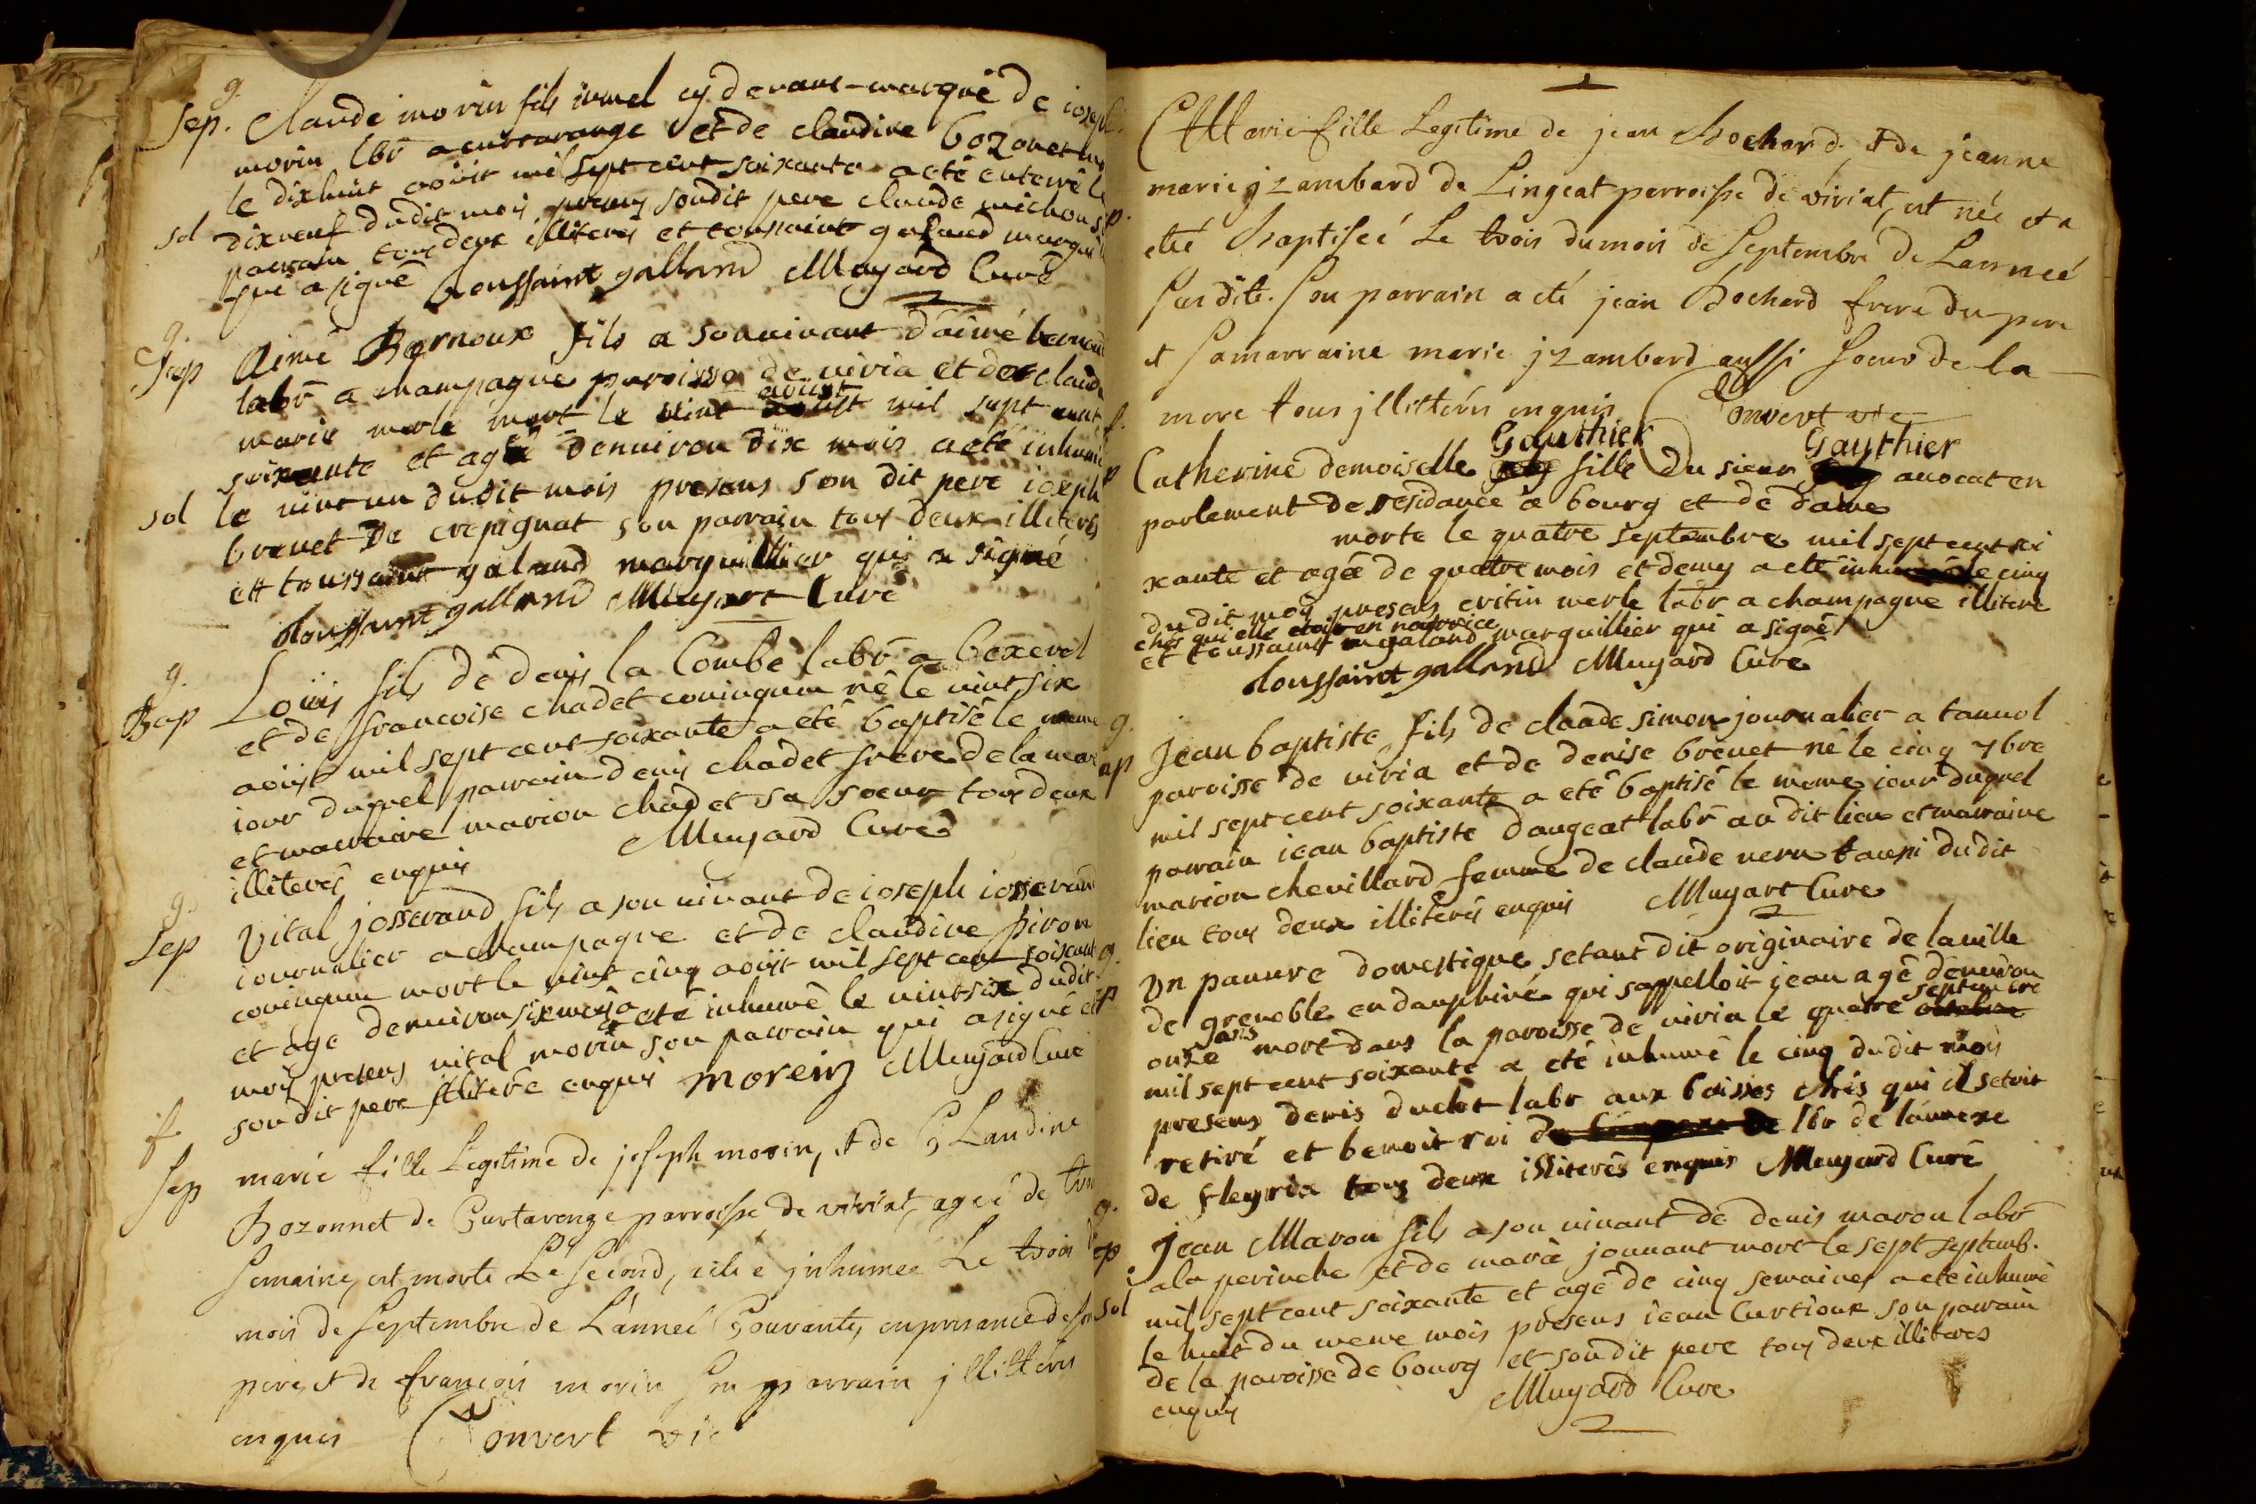 g.
Sep. Claude morin fils iumel cy devant marqué de ioseph
morin lbr a curtarange et de claudine bozonet
le dixhuit aoust mil sept cent soixante a eté enterré le
sol dixneuf dudit mois presens sondit pere claude michon
parrain tous deux illiterés et toussaint galland
qui a signé toussaint galland Muyard Curé
g.
Sep Aimé Bernoux fils a son vivant d'aimé bernoux
labr a champagne paroisse de viria et de claudine
marie merle mort le vint aoust mil sept cent
soixante et agé denuiron dix mois a eté inhumé
sol le vint un dudit mois presens son dit pere ioseph
brevet de crepignat son parrain tous deux illiterés
et toussaint galand marguillier qui a signé
toussaint galland Muyart Curé
g.
Bap Loüis fils de denis la Combe labr a bexerel
et de francoise chadet coniugum né le vint six
aoust mil sept cent soixante a eté baptisé le meme
iour duquel parrain denis chadet frere de la mere
et marraine marion chadet sa soeur tous deux
illiterés enquis Muyard Curé
g.
Sep Vital josserand fils a son vivant de ioseph iosserand
iournalier a champagne et de claudine piron
coniugum mort le vint cinq aoust mil sept cent soixante
et agé denuiron six mois a eté inhumé le vint six dudit
mois presens vital morin son parrain qui a signé et
son dit pere illiteré enquis morein Muyard Curé
f.
Sep marie fille Legitime de joseph morin, et de Claudine
Bozonnet de Curtarenge parroisse de viriat, ageé de trois
semaines, est morte Le second, et inhumeé Le trois
mois de septembre de L'anneé Courante, en presance de son
pere, et de francois morin son parrain jllitterés
enquis Convert vic

Marie fille Legitime de jean Bochard, et de jeanne
marie jzambard de Lingeat parroisse de viriat, est née et a
eté Baptiseé Le trois du mois de septembre de L'anneé
susdite. Son parrain a eté jean Bochard frere du pere
et sa marraine marie jzambard aussi soeur de la
mere tous jllitterés enquis Convert vic
Catherine demoiselle Gauthier fille du sieur Gauthier avocat en
parlement de residance a bourg et de dame
morte le quatre septembre mil sept cent soi
xante et agée de quatre mois et demy a eté inhumée le cinq
dudit mois presens critin merle labr a champagne illiteré
chés qui elle etoit en nourrice
et toussaint galand marguillier qui a signé
toussaint galland Muyard Curé
g.
ap Jean baptiste fils de claude simon journalier a tannol
paroisse de viria et de denise brevet né le cinq 7bre
mil sept cent soixante a eté baptisé le meme iour duquel
parrain iean baptiste daugeat labr au dit lieu et marraine
marion chevillard femme de claude veru taupi dudit
lieu tous deux illiterés enquis Muyart Curé
g.
Un pauvre domestique setant dit originaire de la ville
de grenoble en dauphiné qui sappelloit jean agé denuiron
onze ans mort dans la paroisse de viria le quatre septembre
mil sept cent soixante a eté inhumé le cinq dudit mois
presens denis duclot labr aux baisses chés qui il setoit
retiré et benoit roi lbr de lannexe
de fleyria tous deux illiterés enquis Muyard Curé
g.
ep Jean Maron fils a son vivant de denis maron labr
a la perinche et de marie jouuant mort le sept septemb.
sol mil sept cent soixante et agé de cinq semaines a eté inhumé
le huit du meme mois presens iean Curtioux son parrain
de la paroisse de bourg et son dit pere tous deux illiterés
enquis Muyard Curé